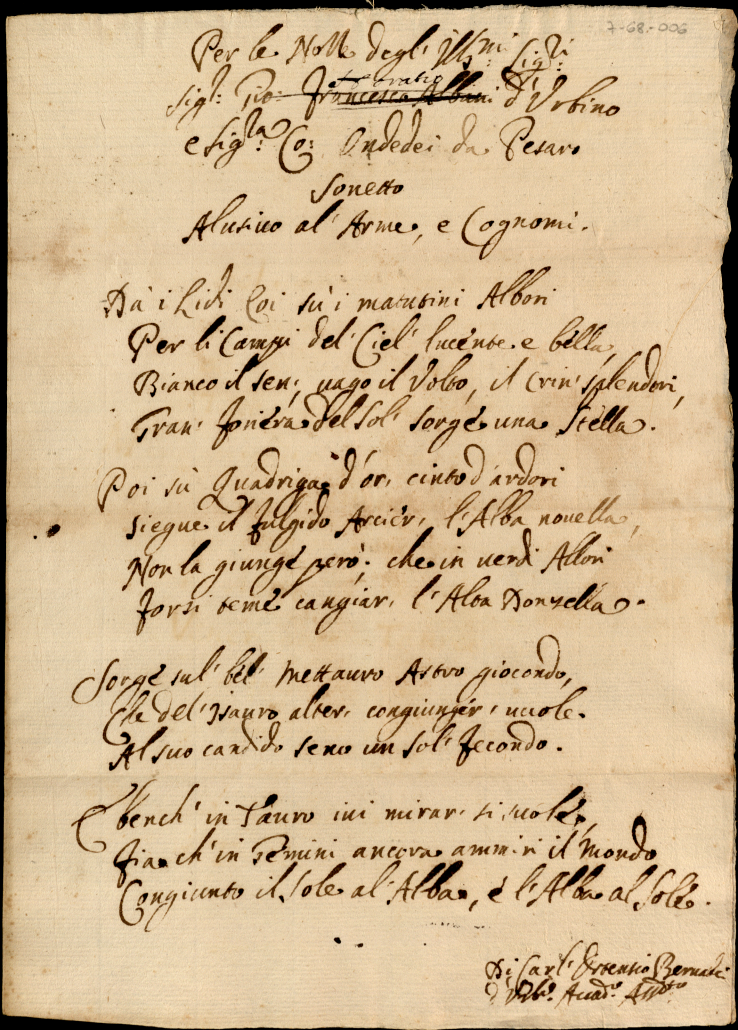 7-68-006
Per le Nozze degl' Ill:mi Sig:ri
Sig:r Gio: Francesco Albani d'Urbino
e Sig:ra Co: Ondedei da Pesaro
Sonetto
Alusivo al' Arme, e Cognomi.
Dà i Lidi Eoi sù i matutini Albori
Per li Campi del' Ciel' lucente e bella,
Bianco il sen', uago il Volto, il crin' splendori,
Foriera del Sol' sorge una Stella.
Poi sù Quadriga d'or, cinto d'ardori
Siegue il fulgido Arcier, l'Alba nouella,
Non la giunge però; che in uerdi Allori
Forsi teme cangiar, l'Alta Donzella.
Sorge sul' bel' Mettauro Astro giocondo,
Che del' Isauro alter, congiunger, uuole
Al suo candido seno un Sol' fecondo.
E bench' in Tauro iui mirar si suole,
Fia ch' in Gemini ancora ammiri il Mondo
Congiunto il Sole al' Alba, è l'Alba al Sole.
Di Carl' Ortensio
d'Urb:o Accad:o